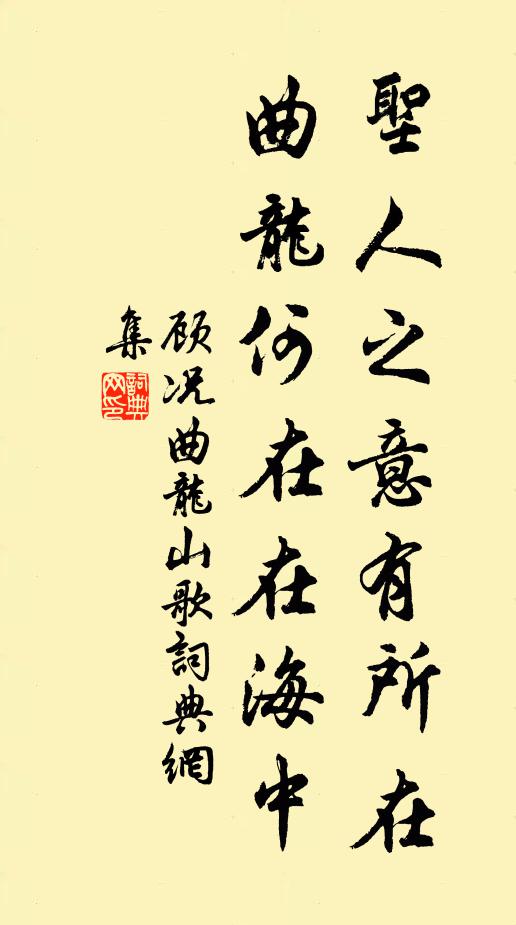 聖人之意有所在
曲龍何在在海中
顾况曲龍山歌詞典網
集
詞典网印